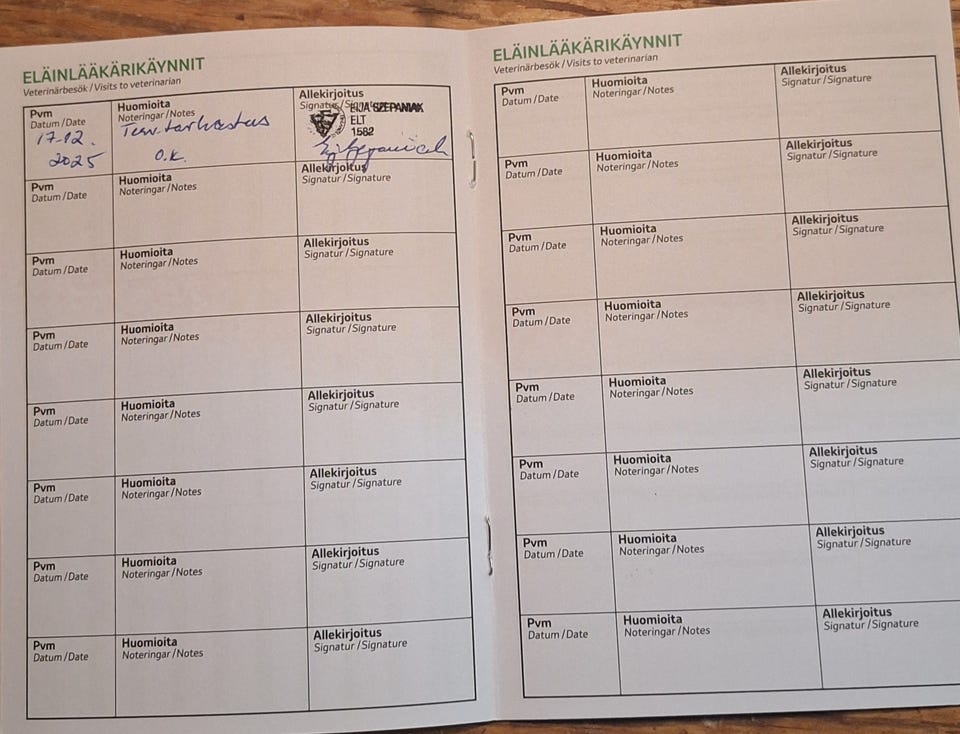 ELÄINLÄÄKÄRIKÄYNNIT
Veterinärbesök / Visits to veterinarian
Pvm
Datum / Date
17.12.
2025
Huomioita
Noteringar / Notes
Terv. tarkastus
O.K.
Allekirjoitus
Signatur / Signature
SZEPANIAK
ELT
1582
Pvm
Datum / Date
Huomioita
Noteringar / Notes
Allekirjoitus
Signatur / Signature
Pvm
Datum / Date
Huomioita
Noteringar / Notes
Allekirjoitus
Signatur / Signature
Pvm
Datum / Date
Huomioita
Noteringar / Notes
Allekirjoitus
Signatur / Signature
Pvm
Datum / Date
Huomioita
Noteringar / Notes
Allekirjoitus
Signatur / Signature
Pvm
Datum / Date
Huomioita
Noteringar / Notes
Allekirjoitus
Signatur / Signature
Pvm
Datum / Date
Huomioita
Noteringar / Notes
Allekirjoitus
Signatur / Signature
Pvm
Datum / Date
Huomioita
Noteringar / Notes
Allekirjoitus
Signatur / Signature
ELÄINLÄÄKÄRIKÄYNNIT
Veterinärbesök / Visits to veterinarian
Pvm
Datum / Date
Huomioita
Noteringar / Notes
Allekirjoitus
Signatur / Signature
Pvm
Datum / Date
Huomioita
Noteringar / Notes
Allekirjoitus
Signatur / Signature
Pvm
Datum / Date
Huomioita
Noteringar / Notes
Allekirjoitus
Signatur / Signature
Pvm
Datum / Date
Huomioita
Noteringar / Notes
Allekirjoitus
Signatur / Signature
Pvm
Datum / Date
Huomioita
Noteringar / Notes
Allekirjoitus
Signatur / Signature
Pvm
Datum / Date
Huomioita
Noteringar / Notes
Allekirjoitus
Signatur / Signature
Pvm
Datum / Date
Huomioita
Noteringar / Notes
Allekirjoitus
Signatur / Signature
Pvm
Datum / Date
Huomioita
Noteringar / Notes
Allekirjoitus
Signatur / Signature